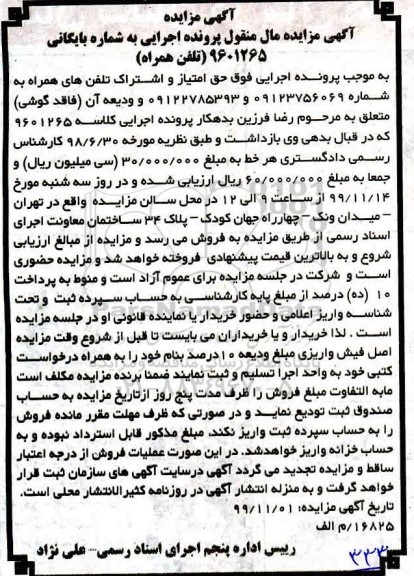 آگهی مزایده
آگهی مزایده مال منقول پرونده اجرایی به شماره بایگانی
۹۶۰۱۲۶۵ (تلفن همراه)
به موجب پرونده اجرایی فوق حق امتیاز و اشتراک تلفن های همراه به
شماره ۰۹۱۲۳۷۵۶۰۶۹ و ۰۹۱۲۲۷۸۵۳۹۳ و ودیعه آن (فاقد گوشی)
متعلق به مرحوم رضا فرزین بدهکار پرونده اجرایی کلاسه ۹۶۰۱۲۶۵
که در قبال بدهی وی بازداشت و طبق نظریه مورخه ۹۸/۶/۳۰ کارشناس
رسمی دادگستری هر خط به مبلغ ۳۰/۰۰۰/۰۰۰ (سی میلیون ریال) و
جمعا به مبلغ ۶۰/۰۰۰/۰۰۰ ریال ارزیابی شده و در روز سه شنبه مورخ
۹۹/۱۱/۱۴ از ساعت ۹ الی ۱۲ در محل سالن مزایده واقع در تهران
– میدان ونک – چهارراه جهان کودک – پلاک ۳۴ ساختمان معاونت اجرای
اسناد رسمی از طریق مزایده به فروش می رسد و مزایده از مبالغ ارزیابی
شروع و به بالاترین قیمت پیشنهادی فروخته خواهد شد و مزایده حضوری
است و شرکت در جلسه مزایده برای عموم آزاد است و منوط به پرداخت
۱۰ (ده) درصد از مبلغ پایه کارشناسی به حساب سپرده ثبت و تحت
شناسه واریز اعلامی و حضور خریدار یا نماینده قانونی او در جلسه مزایده
است . لذا خریدار و یا خریداران می بایست تا قبل از شروع وقت مزایده
اصل فیش واریزی مبلغ ودیعه ۱۰درصد بنام خود را به همراه درخواست
کتبی خود به واحد اجرا تسلیم و ثبت نمایند ضمنا برنده مزایده مکلف است
مابه التفاوت مبلغ فروش را ظرف مدت پنج روز ازتاریخ مزایده به حساب
صندوق ثبت تودیع نماید و در صورتی که ظرف مهلت مقرر مانده فروش
را به حساب سپرده ثبت واریز نکند. مبلغ مذکور قابل استرداد نبوده و به
حساب خزانه واریز خواهدشد. در این صورت عملیات فروش از درجه اعتبار
ساقط و مزایده تجدید می گردد آگهی درسایت آگهی های سازمان ثبت قرار
خواهد گرفت و به منزله انتشار آگهی در روزنامه کثیرالانتشار محلی است.
تاریخ آگهی مزایده: ۹۹/۱۱/۰۱
۱۶۸۲۵/م الف
رییس اداره پنجم اجرای اسناد رسمی– علی نژاد
۳۳۳